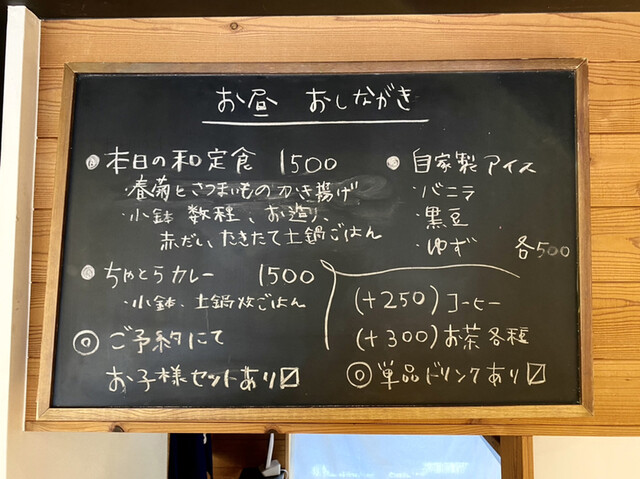 お昼 おしながき
◎本日の和定食 1500
・春菊とさつまいものかき揚げ
・小鉢 数種、お造り、
赤だし、たきたて土鍋ごはん
◎ちゃとらカレー 1500
・小鉢、土鍋炊ごはん
◎ご予約にて
お子様セットあり〼
◎自家製アイス
・バニラ
・黒豆
・ゆず 各500
(+250)コーヒー
(+300)お茶各種
◎単品ドリンクあり〼